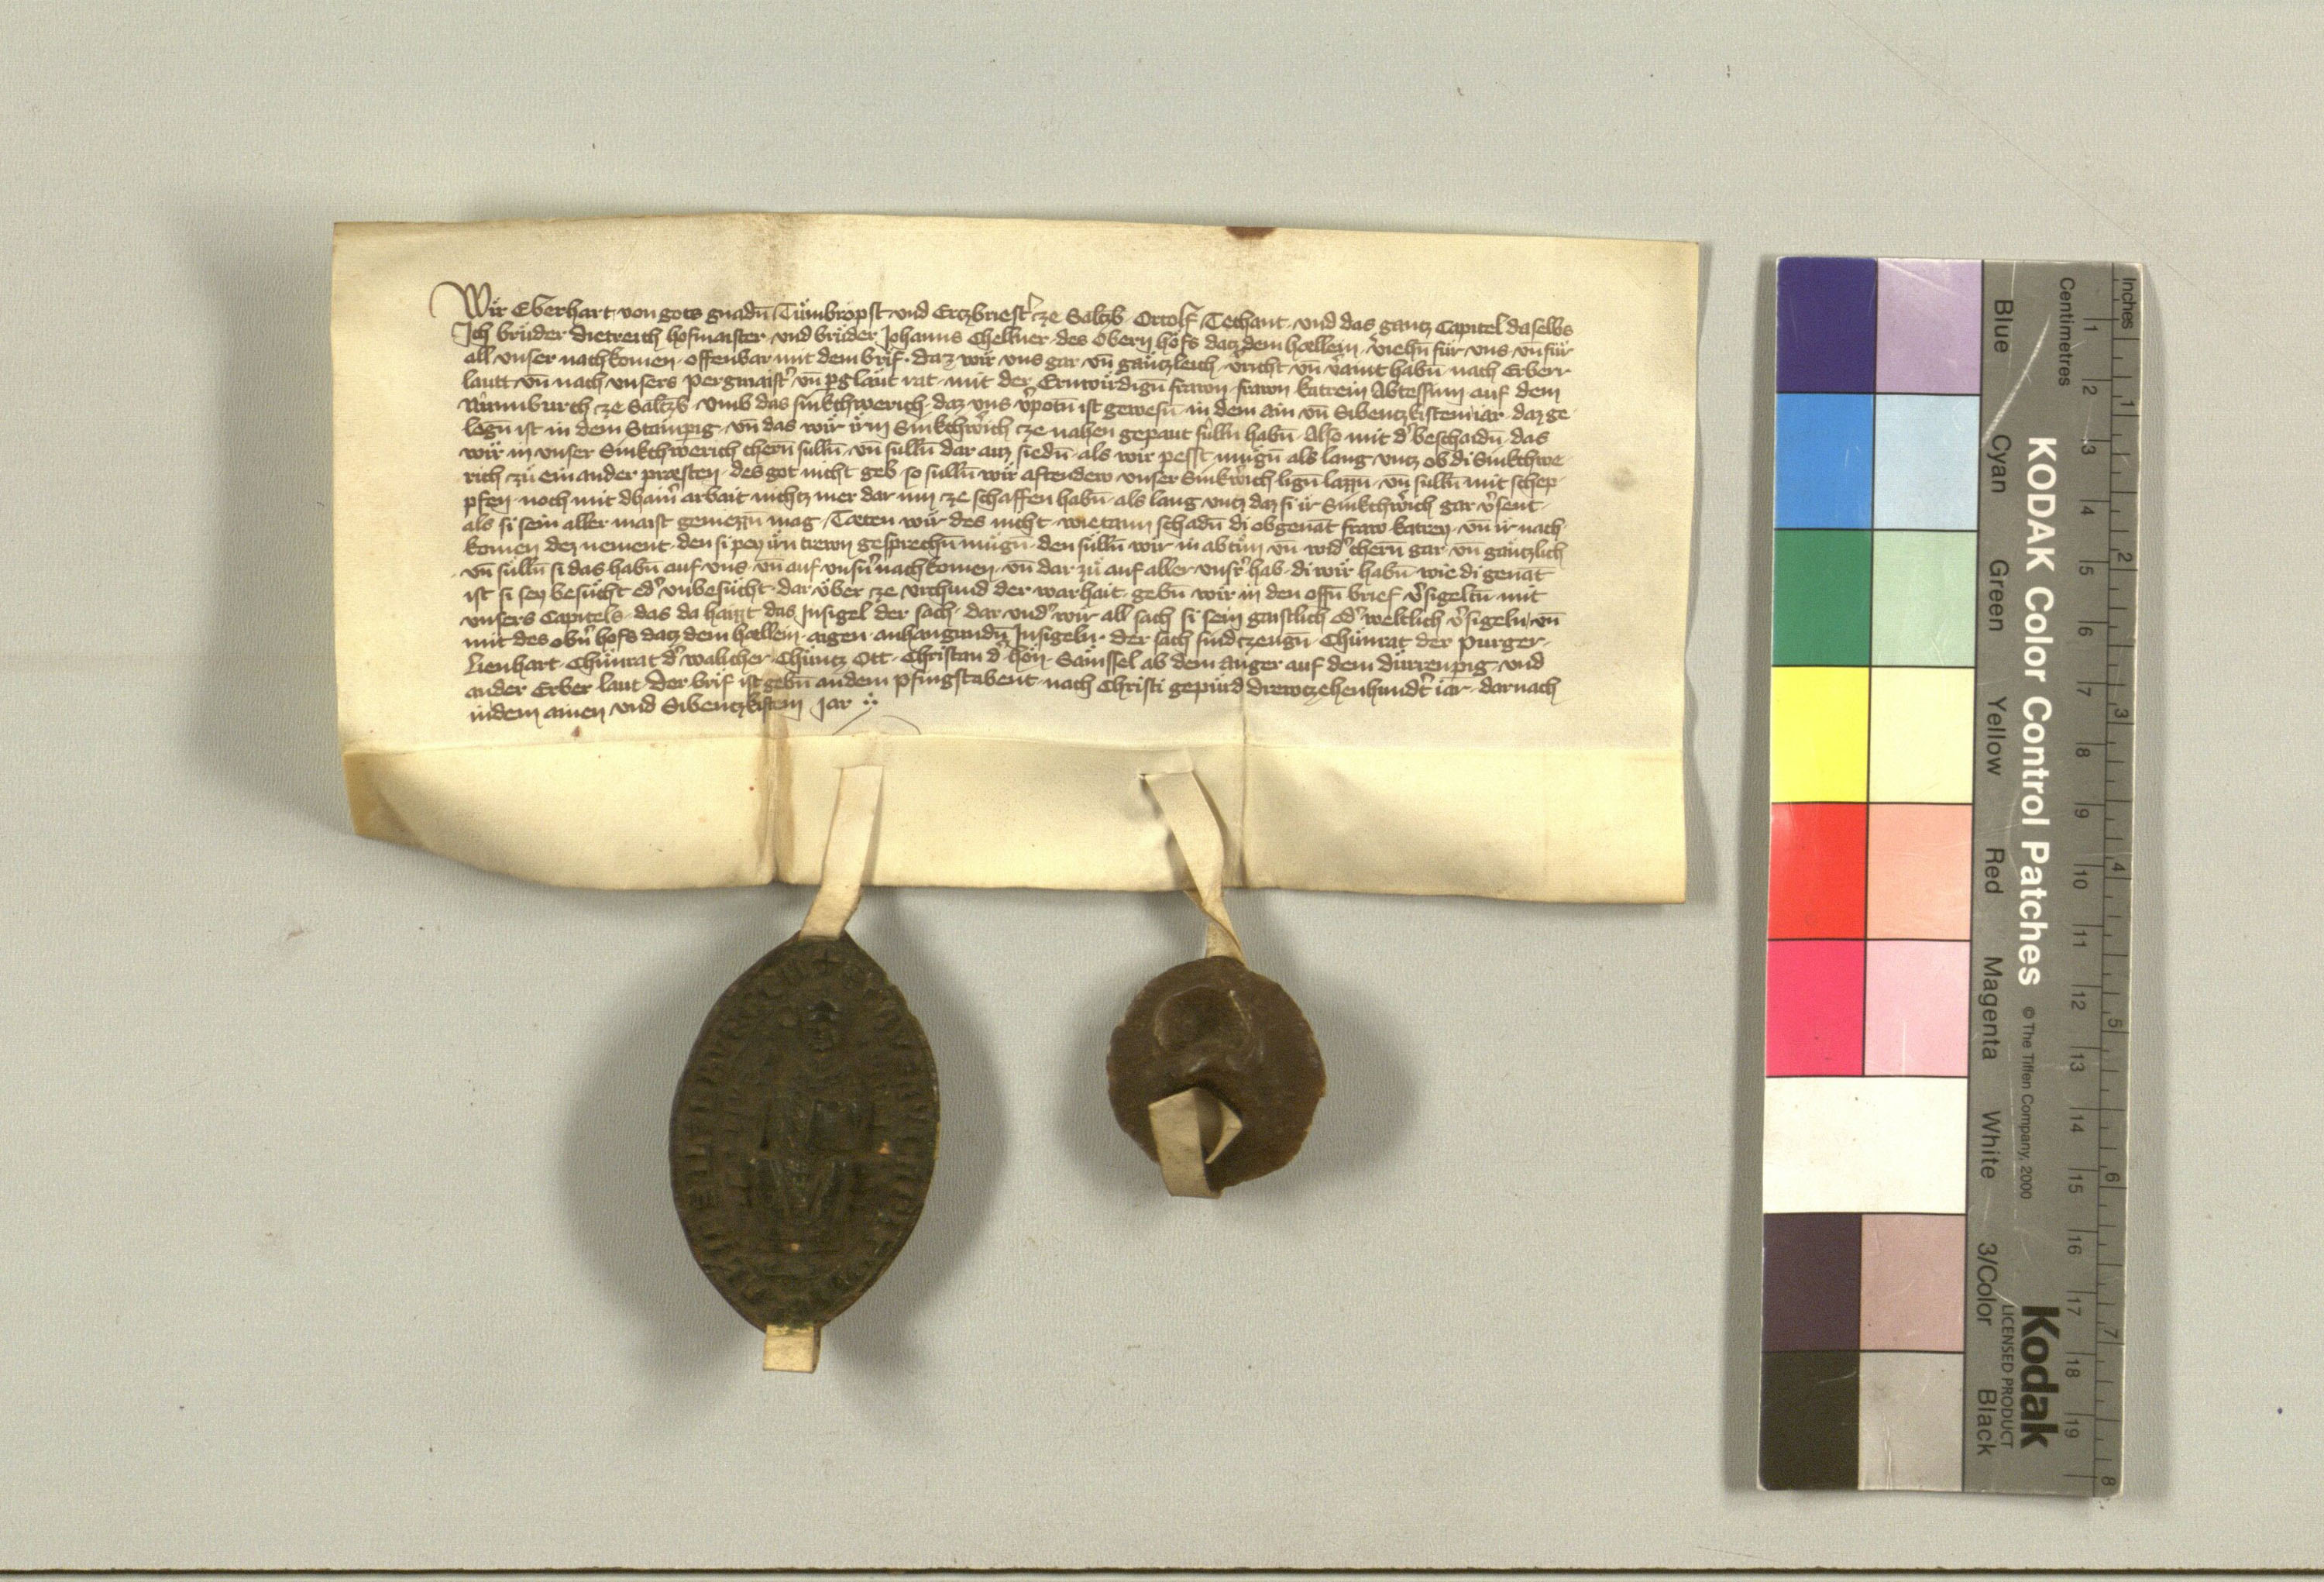 Wir Eberhart von gots gnadn̄ Tůmbropst und Ertzbriest̓ ze Saltzb. Ortolf Techant und das gantz Capitel daselbs
Ich brůder Dietreich hofmaister und brůder Johanns Chellner des Obern hofs datz dem hællein v̓iehn̄ für uns un̄ für
all unser nachkomen offenbar mit dem brif. daz wir uns gar un̄ gäntzleich v̓richt un̄ v̓aint habn̄ nach Erberr
lautt un̄ nach unsers pergmaist̓ un̄ pgläut rat mit der Erwirdign̄ frawn frawn katrein Abtessinn auf dem
Nunnburch ze Saltzb. umb das sinkchwerich daz uns v̓potn̄ ist gewesn̄ in dem ain un̄ Sibentzkistem iar daz ge
legn̄ ist in dem Stainpg un̄ das wir irm Sinkchw̓ich ze nahen gepaut sülln habn̄ Also mit d̓ beschaidn̄ das
wir in unser Sinkchwerich chern̄ sülln̄ un̄ sülln̄ dar auz siedn̄ als wir pesst mügn̄ als lang untz ob di Sinkchwe
rich zů einander præsten des got nicht geb so sülln̄ wir aftendew unser Sinkw̓ich lign̄ lazzn̄ un̄ sülln̄ mit schep
pfen noch mit dhain̓ arbait nichtz mer dar inn ze schaffen habn̄ als lang untz daz si ir Sinkchw̓ich gar v̓sent
als si sein aller maist geniezzn̄ mag Tæten wir des nicht wietann schadn̄ di obgenāt fraw katrey un̄ ir nach
komen dez nement den si pey irn trewn gesprechn̄ mügn̄ den sülln̄ wir in abtůn un̄ wid̓ chern̄ gar un̄ gäntzlich
un̄ sülln̄ si das habn̄ auf uns un̄ auf unsn̓ nachkomen un̄ dar zů auf aller unsr̓ hab di wir habn̄ wie di genāt
ist si sey besůcht od̓ unbesůcht dar über ze urchund der warhait gebn̄ wir in den offn̄ brief v̓sigeltn̄ mit
unsers Capitels das da haizt das Insigel der sach dar und̓ wir all sach si sein gaistlich od̓ weltlich v̓sigeln un̄
mit des obn̓ hofs datz dem hællein aigen anhangundn̄ Insigeln. der sach sind czeugn̄ Chünrat der purger
Lienhart Chünrat d̓ walicher Chüntz Ott Christan d̓ hön Sämssel ab dem anger auf dem dürrenpig und
ander Erber laut der brif ist gebn̄ an dem pfingstabent nach Christi gepürd drewtzehenhundt̓ iar darnach
in dem ainen und Sibentzkistem Jar
Inches
Centimetres
1 2 3 4 5 6 7 8
1 2 3 4 5 6 7 8 9 10 11 12 13 14 15 16 17 18 19
KODAK Color Control Patches © The Tiffen Company, 2000 Kodak
LICENSED PRODUCT
Blue Cyan Green Yellow Red Magenta White 3/Color Black